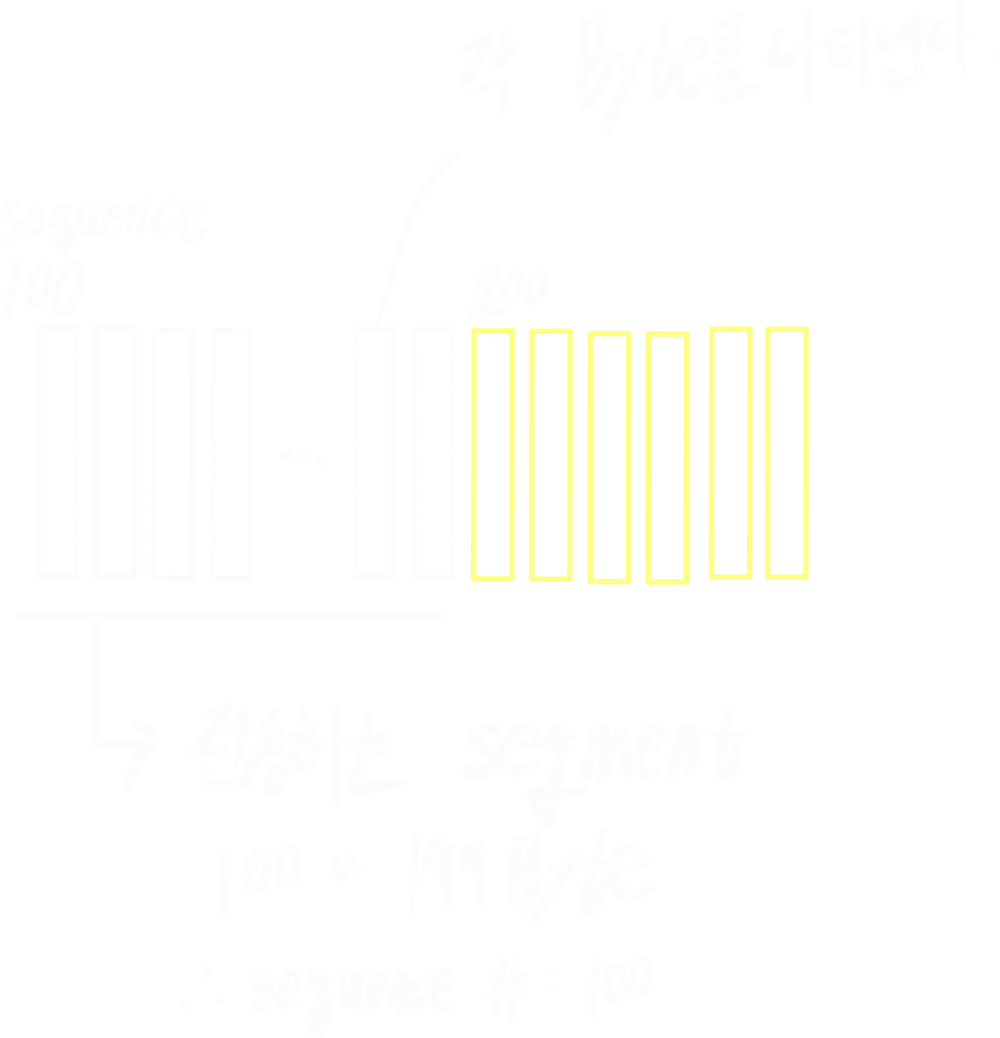 각 Byte를 나타낸다.
sequence
100
200
전송하는 segment
100 ~ 199 Byte
∴ sequence # : 100